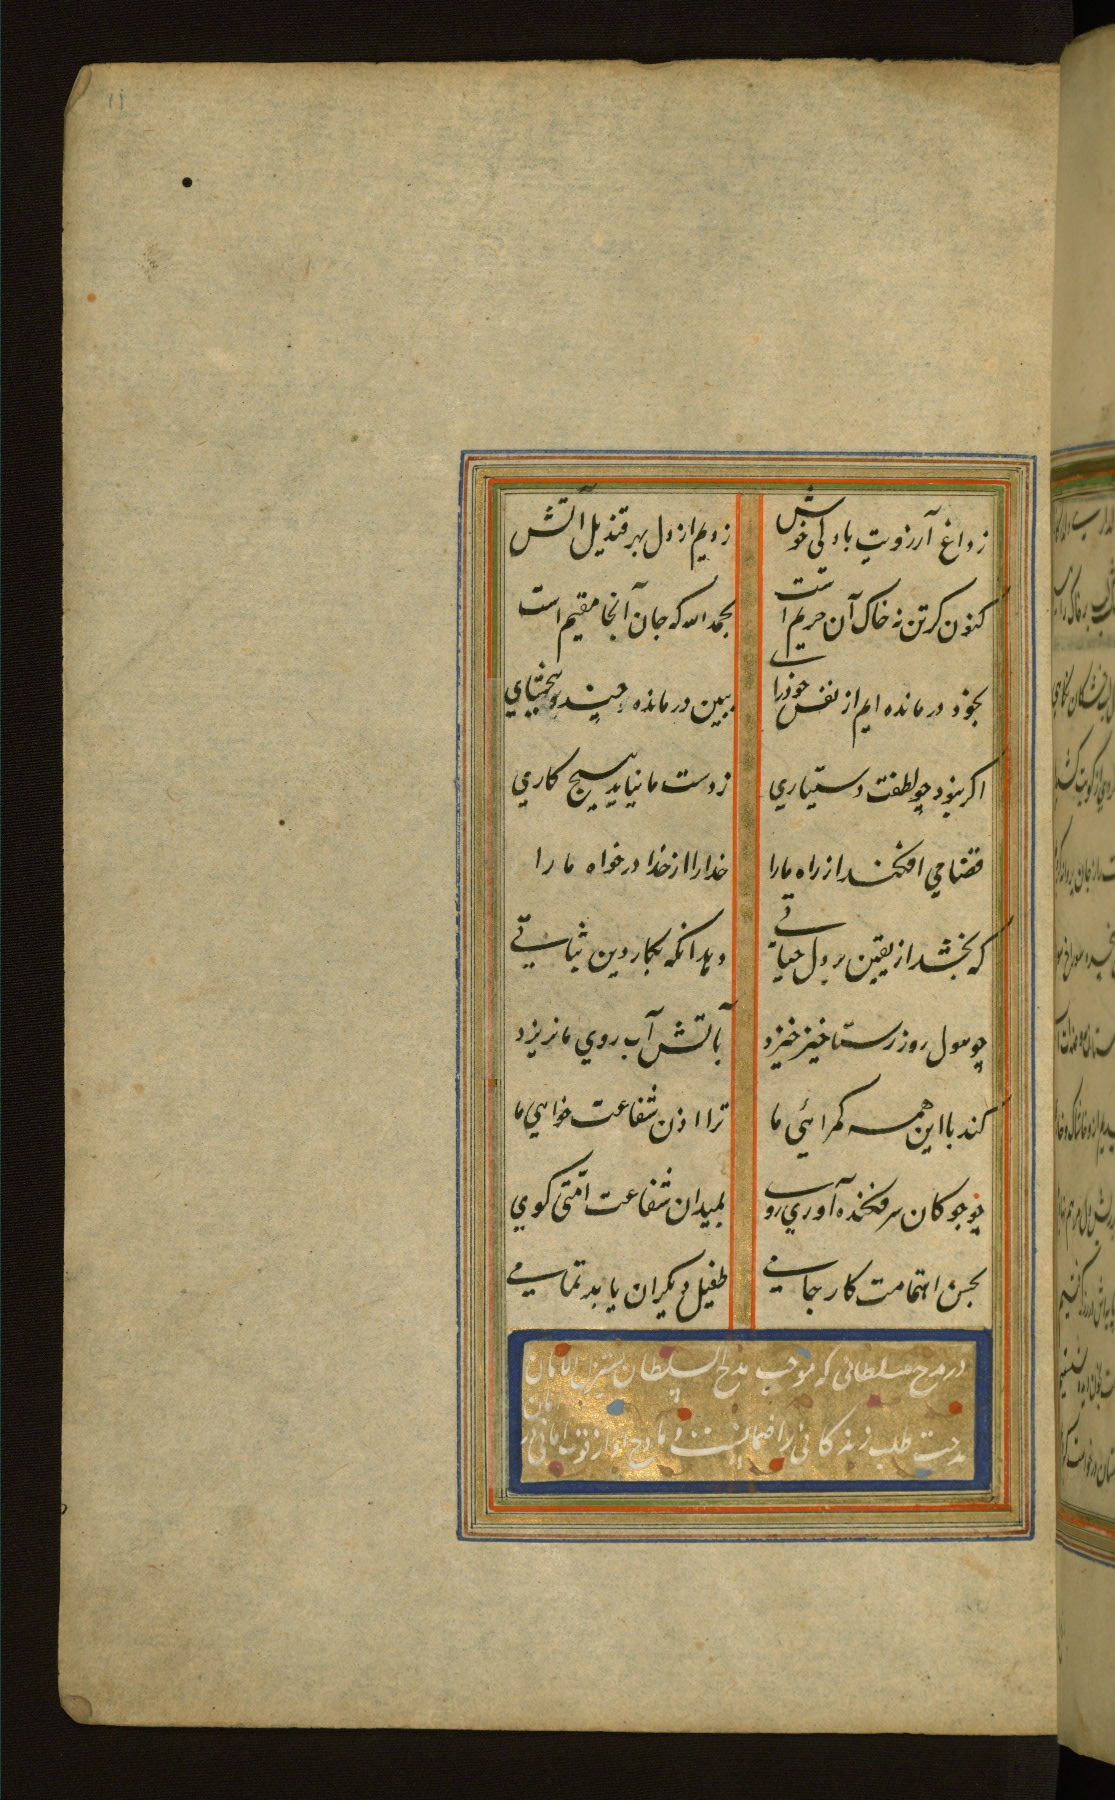 ۱۱
ز داغ آرزویت با دلی خوش زدیم از دل بهر قندیل آتش
کنون گر تن نه خاک آن حریم است بحمد الله که جان آنجا مقیم است
بخود در مانده ایم از نفس خود رای ببین در مانده چندی و ببخشای
اگر نبود چو لطفت دستیاری ز دست ما نیاید هیچ کاری
قضا می افکند از راه ما را خدا را از خدا در خواه ما را
که بخشد از یقین بر دل حیاتی دهد انکه بکار دین ثباتی
چو هول روز رستاخیز خیزد بآتش آب روی ما نریزد
کند با این همه گمراهئی ما ترا اذن شفاعت خواهی ما
چو چوگان سر فکنده آوری روی بمیدان شفاعت امتی گوی
بحسن اهتمامت کار جامی طفیل دیگران یابد تمامی
در مدح سلطانی که موجب مدح السلطان یستنزل الامان
مدحت طلب زندگانی را